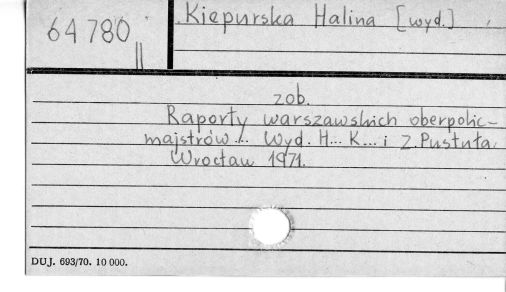 64780 II
Kiepurska Halina [wyd.]
zob.
Raporty warszawskich oberpolic-
majstrów ... Wyd. H... K... i Z. Pustuła.
Wrocław 1971.
DUJ. 693/70. 10 000.